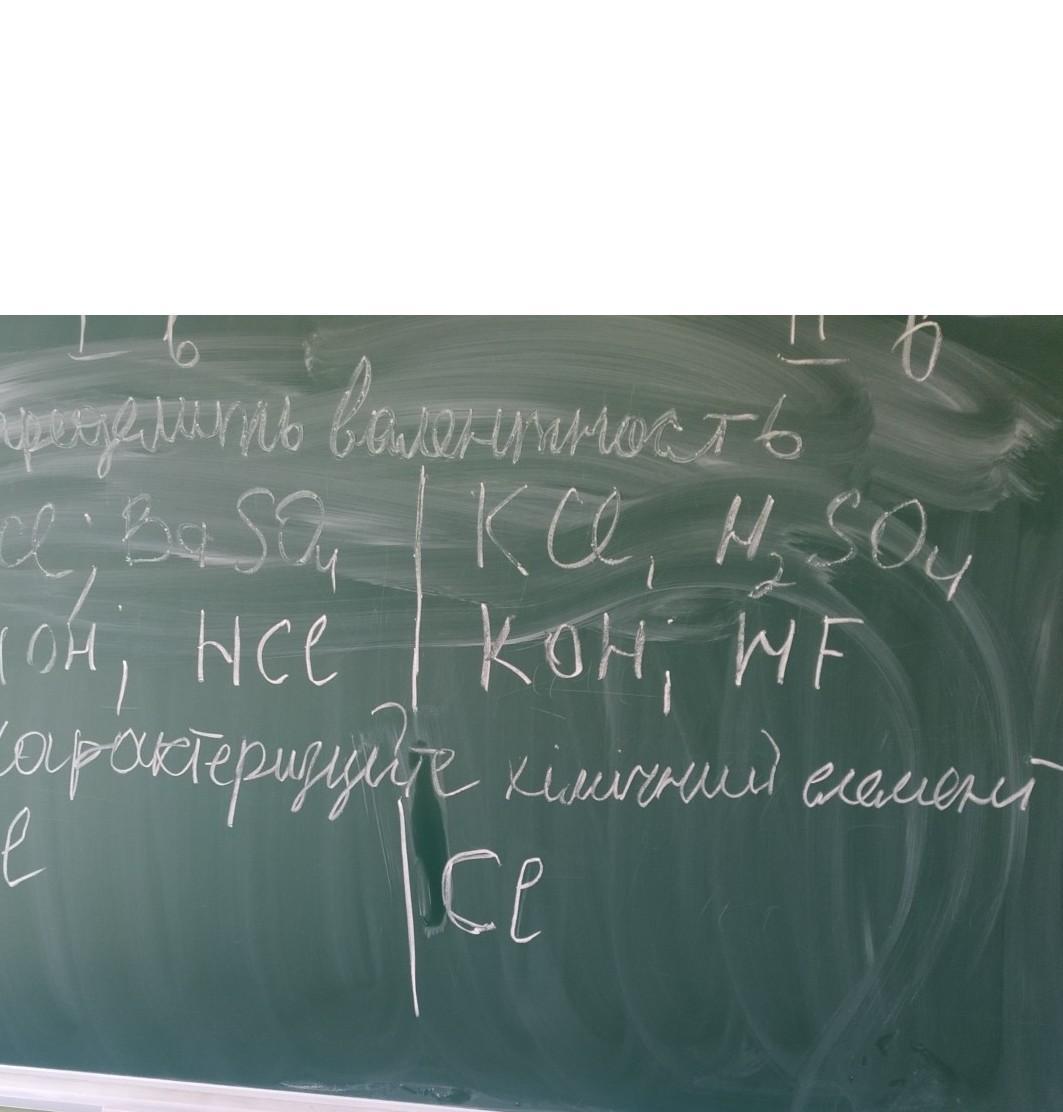 I в II в
пределить валентность
Cl; BaSO4 KCl, H2SO4
OH, HCl KOH, HF
характеризуйте хімічний елемент
Cl